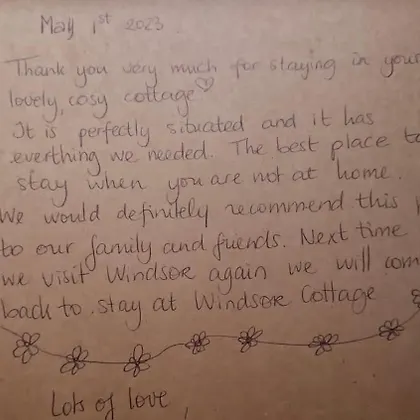 May 1st 2023
Thank you very much for staying in your
lovely, cosy cottage♡
It is perfectly situated and it has
everthing we needed. The best place to
stay when you are not at home.
We would definitely recommend this
to our family and friends. Next time
we visit Windsor again we will com
back to stay at Windsor Cottage
Lots of love,